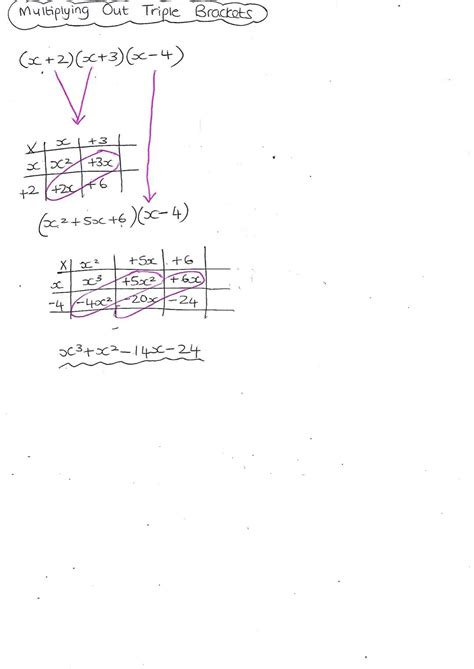 Multiplying Out Triple Brackets
(x+2)(x+3)(x-4)
x x +3
x x² +3x
+2 +2x +6
(x²+5x+6)(x-4)
x x² +5x +6
x x³ +5x² +6x
-4 -4x² -20x -24
x³+x²-14x-24